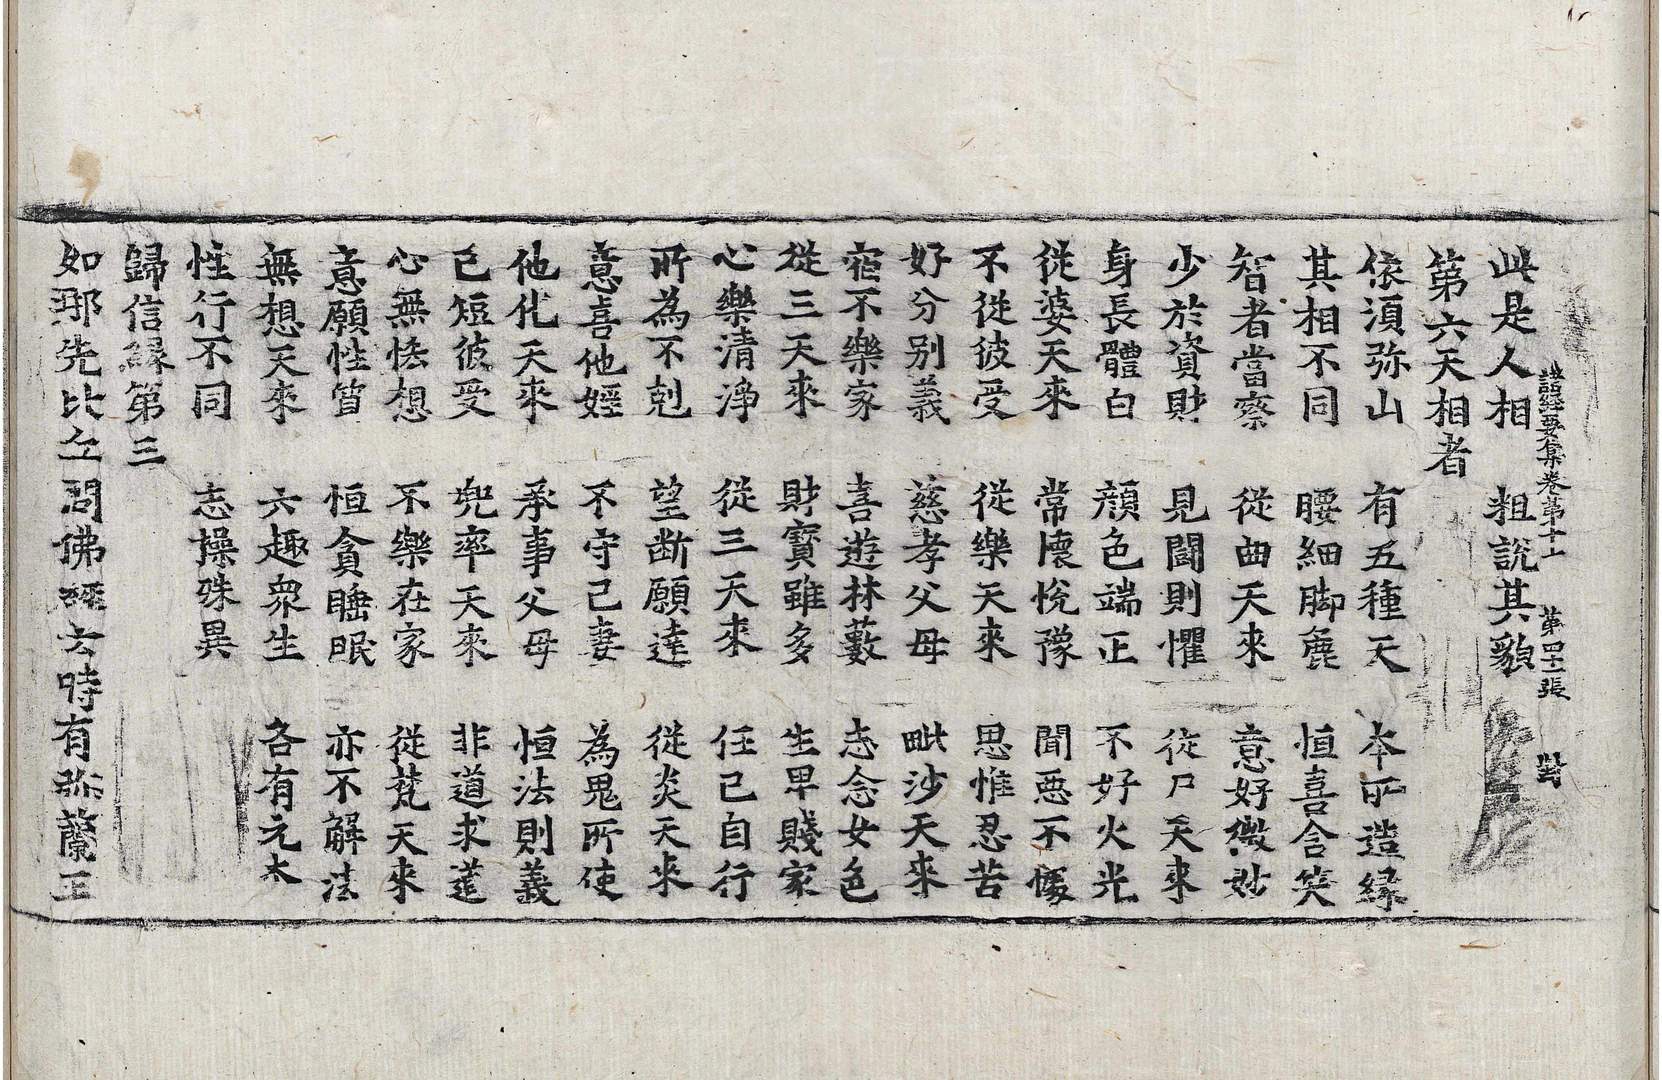 此是人相　粗說其貌
諸經要集卷第十二　第四十二張　對
第六天相者
依須弥山　有五種天　夲所造縁
其相不同　腰細脚麁　恒喜含笑
智者當察　從曲天來　意好微妙
少於資財　見闘則懼　從尸天來
身長體白　顔色端正　不好火光
從婆天來　常懐恱豫　聞惡不懷
不從彼受　從樂天來　思惟忍苦
好分别義　慈孝父母　毗沙天來
宿不樂家　喜遊林藪　志念女色
從三天來　財寳雖多　生卑賤家
心樂清淨　從三天來　任己自行
所為不剋　望断願逹　從炎天來
意喜他婬　不守己妻　為鬼所使
他化天來　承事父母　恒法則義
己短彼受　兜率天來　非道求道
心無恡想　不樂在家　從梵天來
意願性質　恒貪睡眠　亦不解法
無想天來　六趣衆生　各有元夲
性行不同　志操殊異
歸信縁第三
如那先比丘問佛經云時有弥蘭王